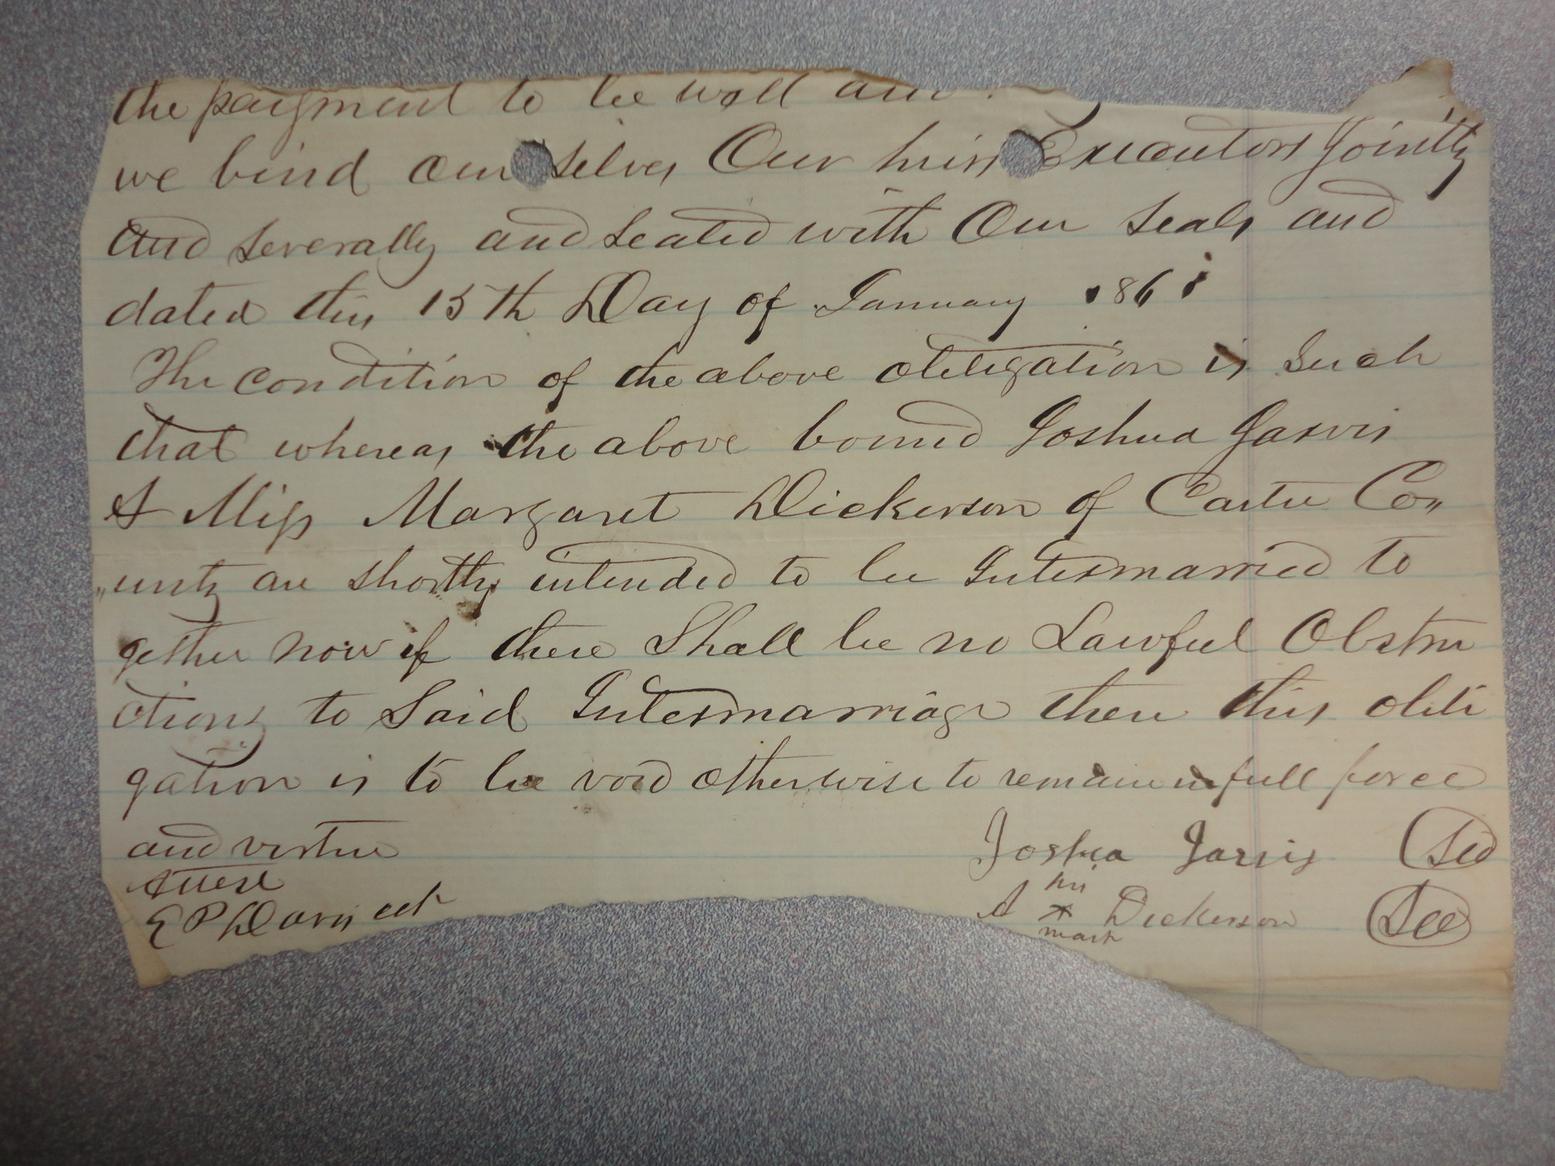 the payment to be well and
we bind ourselves Our heirs Executors Jointly
and severally and sealed with Our seals and
dated this 15th Day of January 1861
The condition of the above obligation is Such
that whereas the above bound Joshua Jarvis
& Miss Margaret Dickerson of Carter Co"
"unty are shortly intended to be Intermarried to
gether now if there Shall be no Lawful Obstru
ctions to Said Intermarriage then this obli
gation is to be void otherwise to remain in full force
and virtue
Joshua Jarvis
Attest
his
A x Dickerson
mark
E P Davis